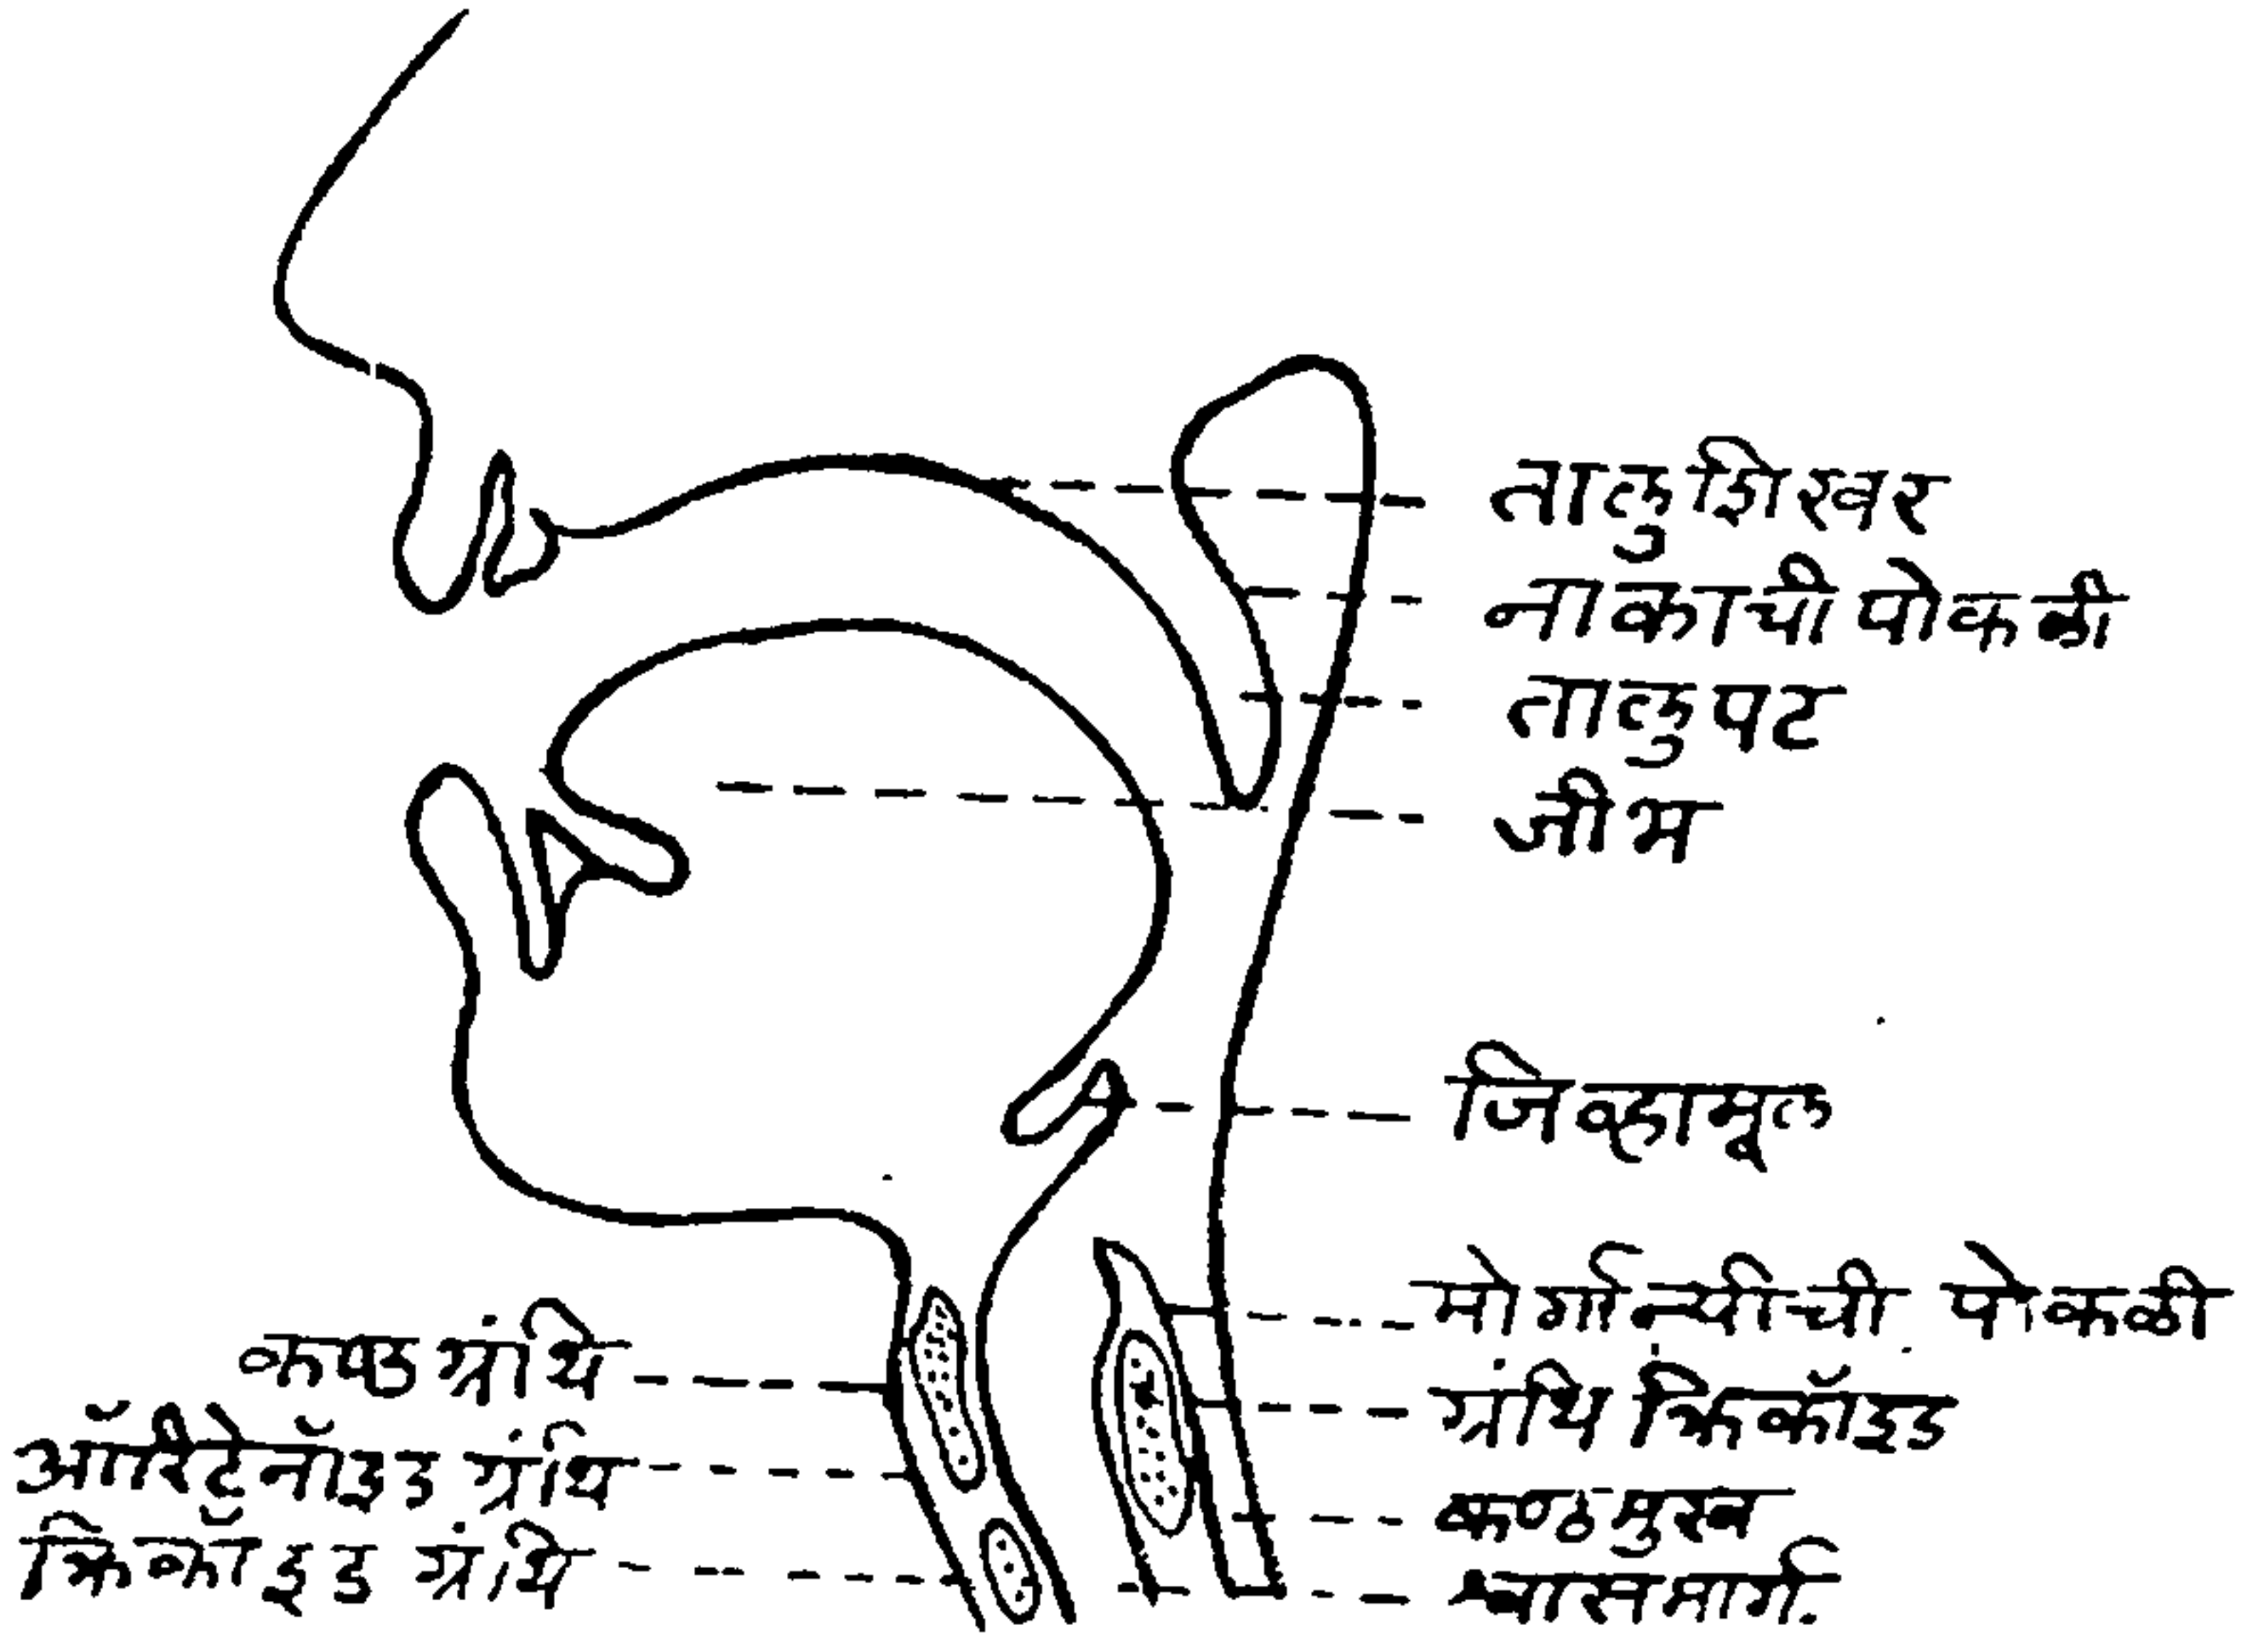 तालुशिखर
नाकाची पोकळी
तालुपट
जीभ
जिव्हामूल
मोर्गान्यीची पोकळी
ग्रंथि क्रिकॉइड
कण्ठमुख
श्वासमार्ग.
कण्ठग्रंथि
ऑरिटेनॉइड ग्रंथि
क्रिकॉइड ग्रंथि